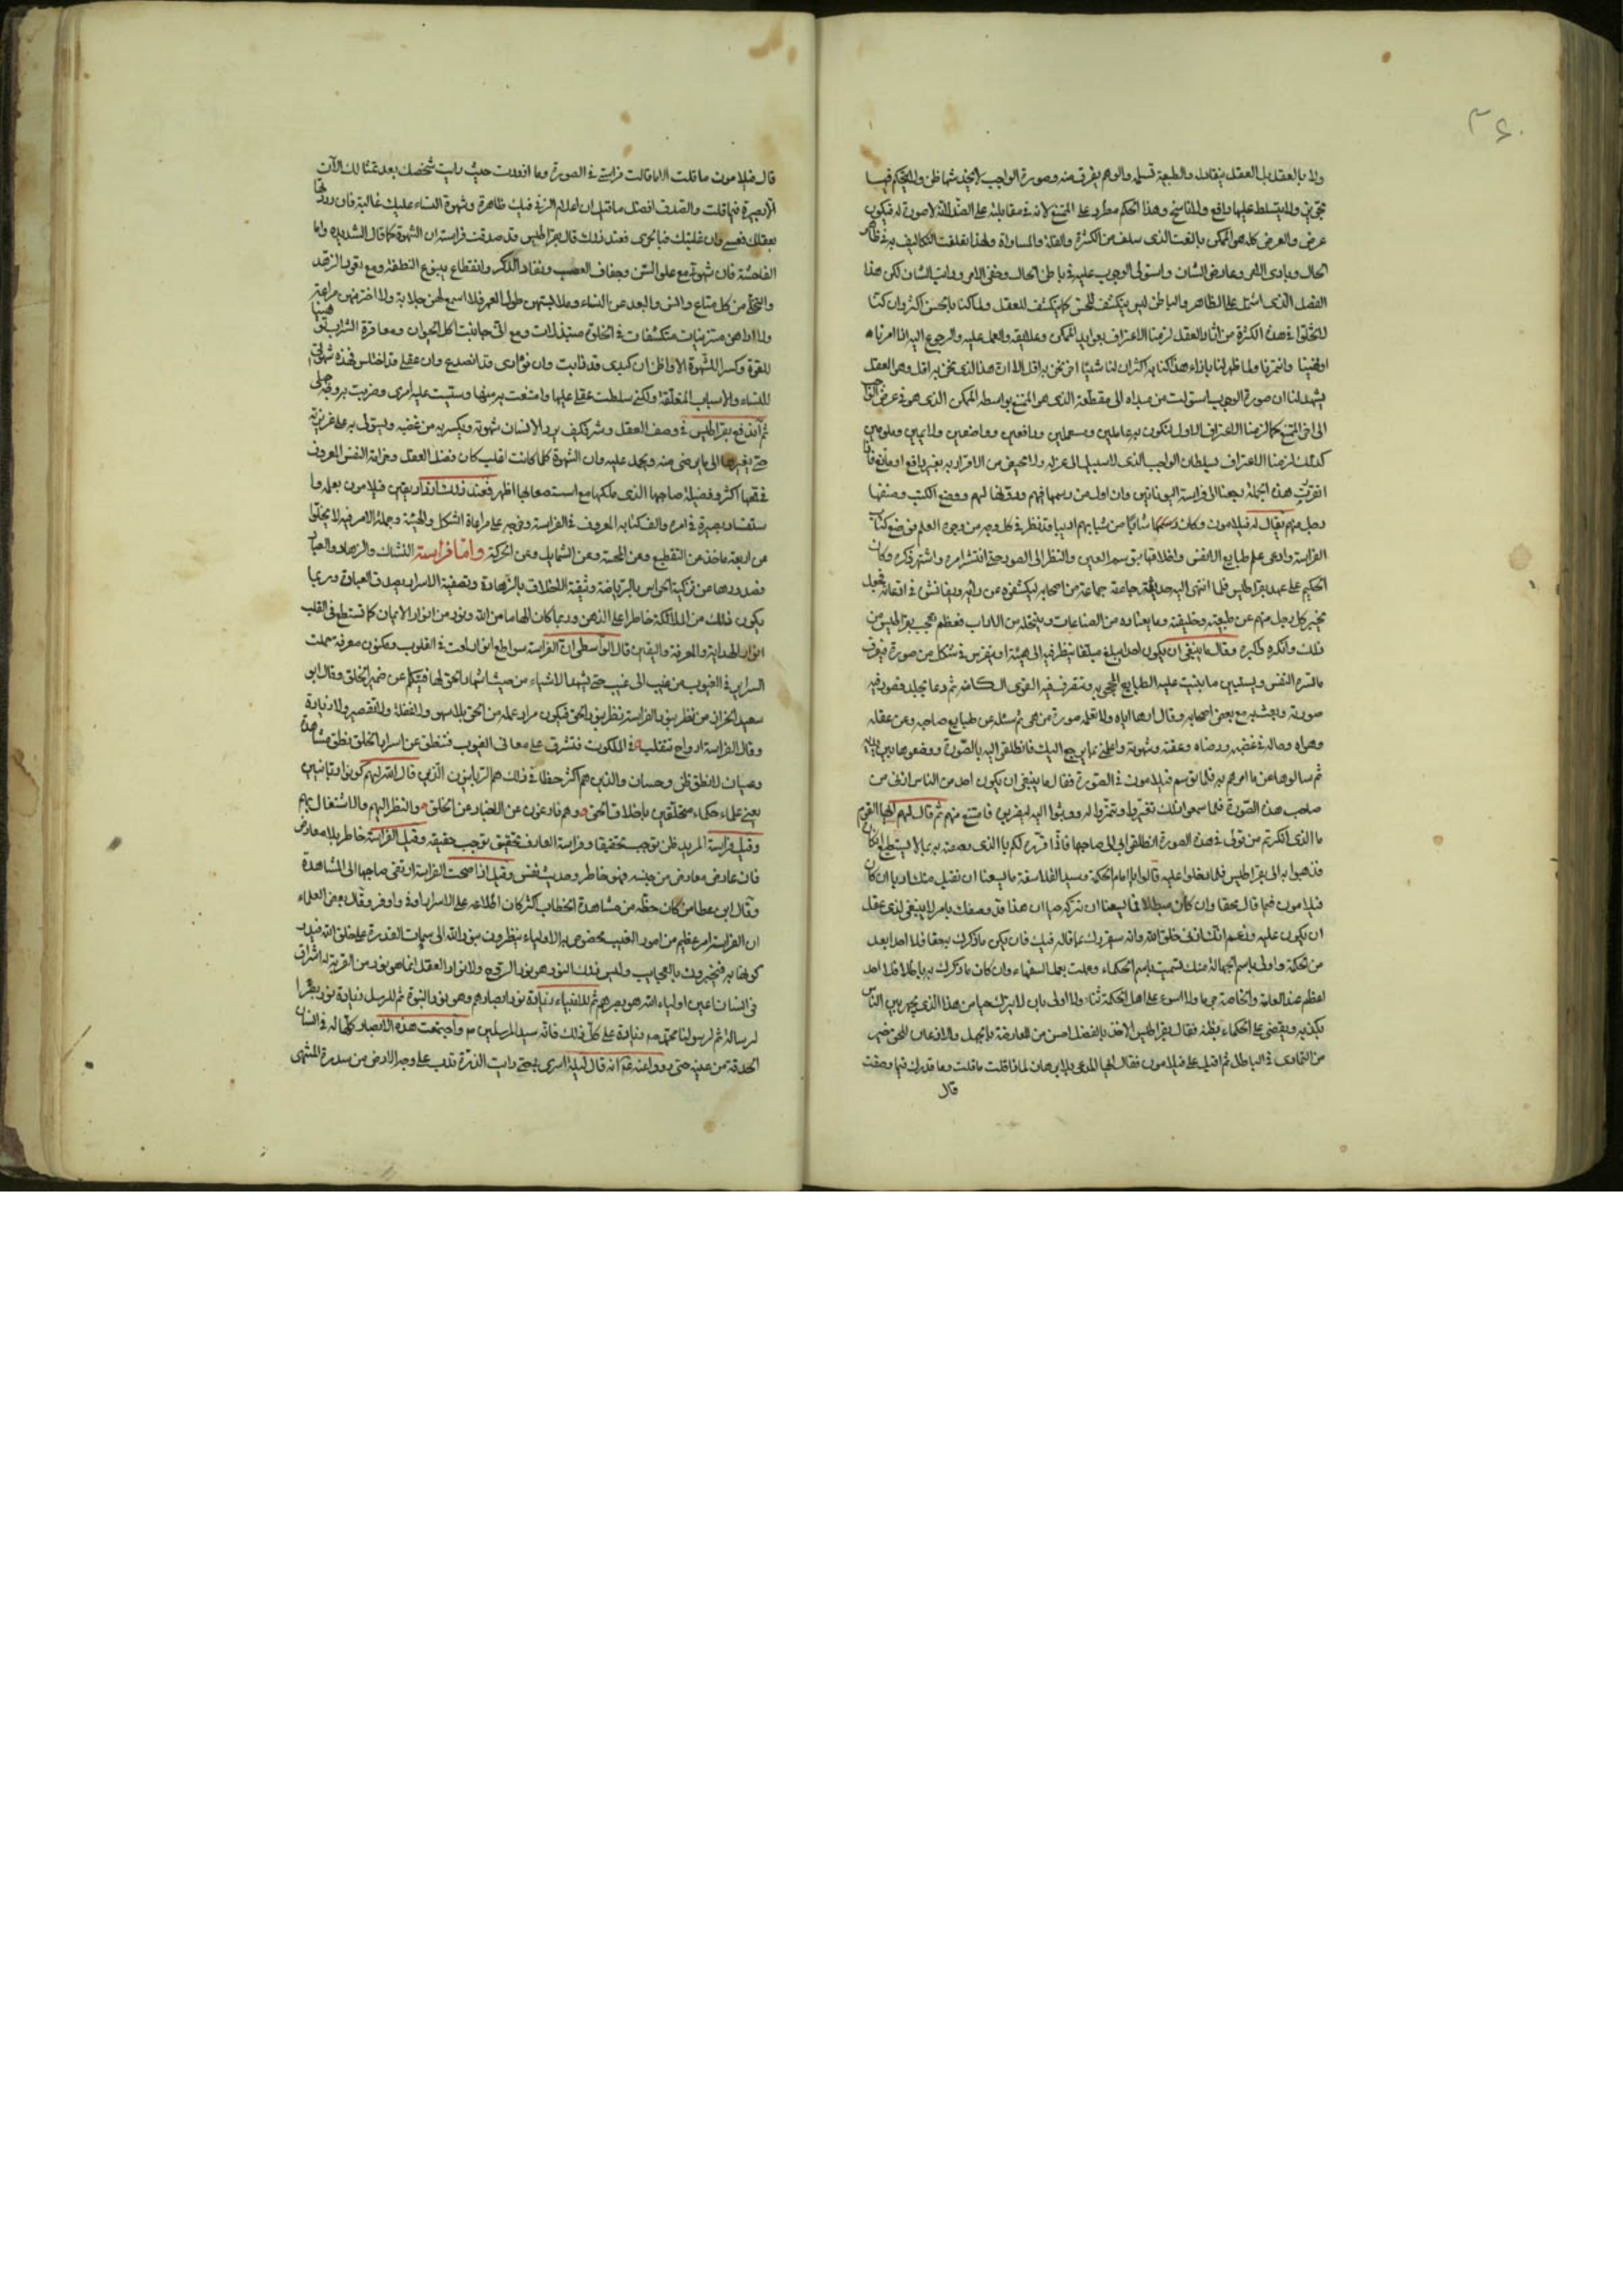 ٣٤٠
ولا بالعقل بل العقل يقابله والطبيعة قسيمه والوهم يفرق منه وصورة الواجب لا يجد شها ظن ولا يحكم فيها
تجويز ولا يتسلط عليها دافع ولا ناسخ وهذا الحكم مطرد على الممتنع لانه في مقابلته على الضد لانه لا صورة له فيكون
عرض والعرض كله هو الممكن بالنعت الذى سلف من الكثرة والقلة والمساواة ولهذا تعلقت التكاليف به في ظاهر
الحال وبادى الراى وعارض الشان واستولى الوجوب عليه في باطن الحال وخفى الامر وراتب الشان لكن هذا
الفصل الذى اشتمل على الظاهر والباطن ليس ينكشف للحس كما ينكشف للعقل ولما كنا بالحس اكثر وان كنا
لا نخلوا في هذه الكثرة من اثار العقل لزمنا الاعتراف بعوايد الممكن وعلايقه والعمل عليه والرجوع اليه اذا امرناه
او نهينا وائتمرنا ولما ظهر لنا بازاء هذا كنا به اكثر ان لنا شيئا اخر نحن به اقل الا ان هذا الذى نحن به اقل وهو العقل
يشهد لنا ان صورة الوجوب استولت من مبداه الى مقطعه الذى هو الممتنع بواسطة الممكن الذى هو في عرض الواجب
الى افق الممتنع كما لزمنا الاعتراف الاول لنكون به عاملين ومستعملين ورافعين وواضعين ولايمين وملومين
كذلك لزمنا الاعتراف بسلطان الواجب الذى لا سبيل الى عزله ولا محيص من الاقرار به بغير دافع او مانع فان
انقررت هذه الجملة رجعنا الى فراسة اليونانيين وان اول من رسمها فيهم ودونها لهم ووضع الكتب وصنفها
رجل منهم يقال له فيلامون وكان حكيما شابا من شبابهم اديبا قد نظر في كل وجه من وجوه العلم فوضع كتاب
الفراسة وادعى علم طبايع الانفس واخلاقها بتوسم العين والنظر الى الصور حتى انتشر امره واشتهر ذكره وكان
الحكيم على عهد بقراطيس فلما انتهى اليه حديثه جماعة من اصحابه ليكشفوه عن رايه ويفاتشوه في ادعائه فجعل
يخبر كل رجل منهم عن طبيعته وخليقته وما يعتاده من الصناعات وينتحله من الاداب فعظم عجب بقراطيس من
ذلك وانكره وكبره وقال ما ينبغي ان يكون احد ابلغ مبلغا ينظر فيه الى هيئة او يتفرس في شكل من صورة فيعرف
ما تسره النفس ويستبين ما بنيت عليه الطبايع المحى به ويتفرق فيه القوى الكامنة ثم دعا بجلد فصور فيه
صورته وبعث به مع بعض اصحابه وقال ارها اياه ولا تعلمه صورة من هى ثم سله عن طبايع صاحبه وعن عقله
وهواه وحاله في غضبه ورضاه وعفته وشهوته واعلمنى بما يرجع اليك فانطلقوا اليه بالصورة ووضعوها بين يديه
ثم سالوه عن ما امرهم به فلما توسم فيلامون في الصورة فقال ما ينبغي ان يكون احد من الناس ازنى من
صاحب هذه الصورة فلما سمعوا ذلك تغيروا وتنمروا له ووثبوا اليه ليضربوه فامتنع منهم ثم قال لهم ايها القوم
ما الذى انكرتم من قولى في هذه الصورة انطلقوا بى الى صاحبها فاذا قرره لكم بالذى وصفته به بما لا يستطيع انكاره
فذهبوا به الى بقراطيس فلما دخلوا عليه قالوا يا امام الحكمة وسيد الفلاسفة ما يسعنا ان نقبل منك ادبا ان كان
فيلامون فيما قال محقا وان كان مبطلا فما يسعنا ان نتركه حيا ان هذا قد وصفك بامر لا ينبغي لذى عقل
ان يكون عليه وزعم انك ازنى خلق الله وانه سيقررك بما قاله فيك فان يكن ما ذكرك به حقا فلا احد ابعد
من الحكمة واولى باسم الجهالة منك لتسميت باسم الحكماء وعملت بعمل السفهاء وان كان ما ذكرك به باطلا فلا احد
اعظم عند العامة والخاصة جرما ولا اسوء على اهل الحكمة ثناء ولا اولى بان لا يترك حيا من هذا الذى يجهر بين الناس
بكذبه ويقضى على الحكماء بظنه فقال بقراطيس الاخذ بالفضل احسن من المعارضة بالجهل والاذعان للحق خير
من التمادى في الباطل ثم اقبل على فيلامون فقال ايها المدعى بلا برهان لماذا قلت ما قلت وما قدرك فيما وصفت
قال
قال فيلامون ما قلت الا ما قالت فراستى في الصورة وما ازددت حيث رايت شخصك بعد تمثالك الآن
الا بصيرة فيما قلت والصدق افضل ما قيل ان اعلام الزنى فيك ظاهرة وشهوة النساء عليك غالبة فان رددتها
بعقلك فعسى وان غلبتك فبالحرى فعند ذلك قال بقراطيس قد صدقت فراسته ان الشهوة كما قال الشديدة واما
الفاحشة فان شهوته مع على السن وجفاف العصب ونفاد الذكر وانقطاع ينبوع النطفة ومع دعوى الزهد
والتخلى من كل متاع وانس والبعد عن النساء وملابستهن طول العمر فلا اسمع لهن جلابة ولا احترمهن مراعية
ولا اراهن متزينات متكشفات في اخلاق مبتذلات ومع انى جانبت اكل الحيوان ومعاقرة الشراب توهينا
للقوة وكسرا للشهوة الا واظن ان كبدى قد ذابت وان فؤادى قد انصدع وان عقلى قد اختلس لهذه شهوتى
للنساء والاسباب المتعلقة ولكنى سلطت عقلى عليها وامتنعت به منها وسقيت عليه امرى وضربت به وجه جهلى
ثم اندفع بقراطيس في وصف العقل وشرفه كيف يرد الانسان شهوته ويكسر به من غضبه ويستولى به على غريزته
حتى يغيرها الى ما يرضى منه ويحمد عليه وان الشهوة كلما كانت اغلب كان فضل العقل وعزامة النفس المعروف
فقهها اكثر وفضيلة صاحبها الذى ملكها مع استصعابها اظهر فعند ذلك ازداد يقين فيلامون بعلمه وا
ستفاد بصيرة في امره والف كتابه المعروف في الفراسة وخرجه على مراعاة الشكل والهيئة وجملة الامر فيه لا يخلوا
من اربعة ماخذ من التقطيع ومن الجسة ومن الشمايل ومن الحركة واما فراسة النساك والزهاد والعباد
فصدورها عن تزكية الحواس بالرياضة وتنقية الاخلاق بالزهادة وتصفية الاسرار بصدق العبادة وربما
يكون ذلك من الملائكة خاطرا على الذهن وربما كان الهاما من الله ونور من انوار الايمان كما تسطع في القلب
انوار الهداية والمعرفة واليقين قال الواسطى ان الفراسة سواطع انوار لمعت في القلوب وتمكين معرفة حملت
السراير في الغيوب من غيب الى غيب حتى يشهد الاشياء من حيث اشهدها الحق لها فيتكلم عن ضمير الخلق وقال ابو
سعيد الخراز من نظر بنور الفراسة نظر بنور الحق فيكون مراد علمه من الحق بلا سهو ولا غفلة ولا تقصير ولا زيادة
وقال الفراسة ارواح تتقلب في الملكوت فتشرق على معانى الغيوب فتنطق عن اسرار الخلق نطق مشاهدة
وعيان لا نطق ظن وحسبان والذين هم اكثر حظا في ذلك هم الربانيون الذين قال الله لهم كونوا ربانيين
يعنى علماء حكماء متخلقين باخلاق الحق وهم فارغون عن الاخبار عن الخلق والنظر اليهم والاشتغال بهم
وقيل فراسة المريد ظن يوجب تحقيقا وفراسة العارف تحقيق يوجب حقيقة وقيل الفراسة خاطر بلا معارض
فان عارض معارض من جنسه فهو خاطر وحديث نفس وقيل اذا صحت الفراسة ارتقى صاحبها الى المشاهدة
وقال ابن عطا من كان حظه من مشاهدة الخطاب اكثر كان اطلاعه على الاسرار اوفى واوفر وقال بعض العلماء
ان الفراسة امر عظيم من امور الغيب مخصوص به الاولياء ينظرون بنور الله الى سمات القدرة على خلق الله فيدر
كونها به فيخبرون بالعجايب وليس ذلك النور هو نور الروح ولا نور العقل انما هو نور من القربة له اشراق
في انسان اعين اولياء الله هو بصرهم ثم للانبياء زيادة نور ابصارهم وهو نور النبوة ثم للرسل زيادة نور بصر
لرسالته ثم لرسولنا محمد صم زيادة على كل ذلك فانه سيد المرسلين صم واجتمعت هذه الابصار كلها له في انسان
الحدقة من عينيه حتى روو اعنه عم انه قال ليلة اسرى بى حتى رايت الذرة تدب على وجه الارض من سدرة المنتهى